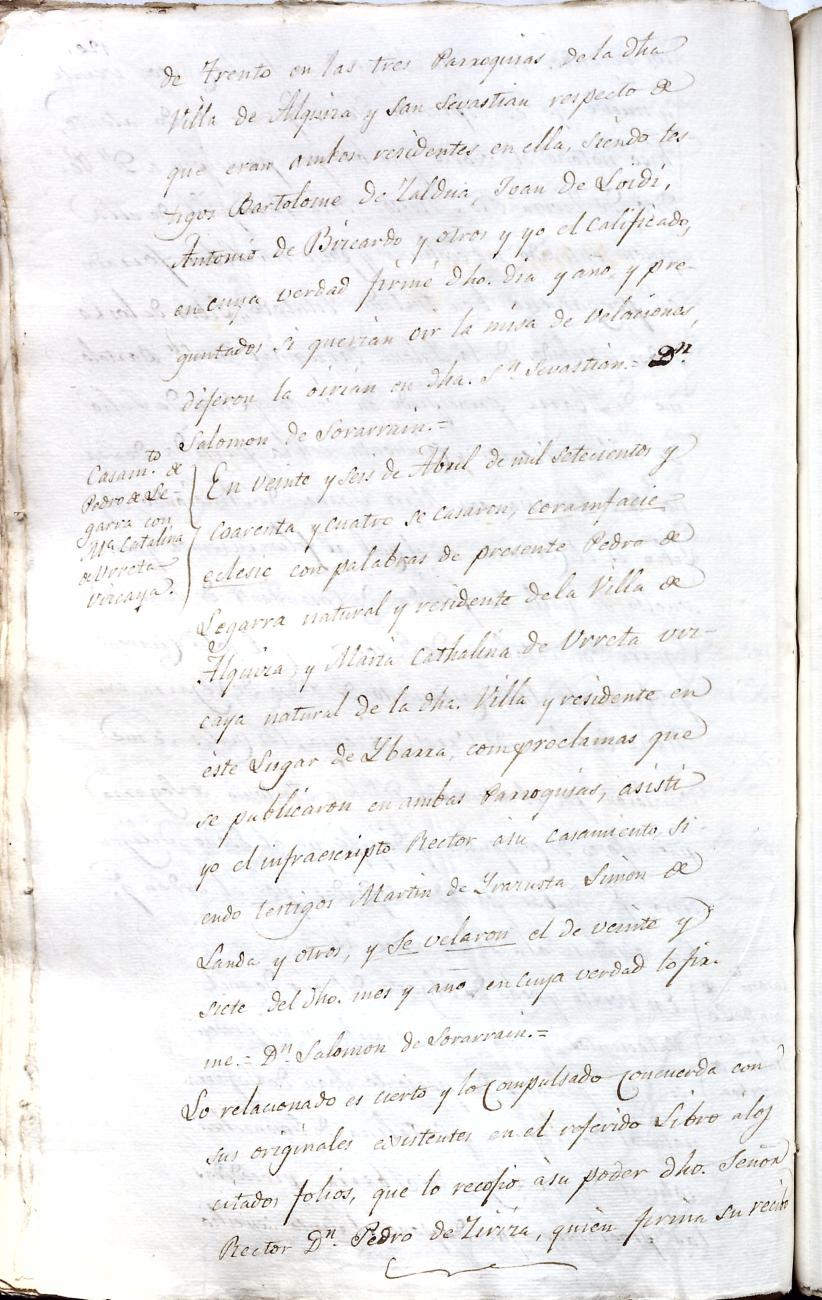 de Trento en las tres Parroquias de la dha
Villa de Alquiza y San Sevastian respecto de
que eran ambos residentes en ella, siendo tes
tigos Bartolome de Zaldua, Joan de Loidi,
Antonio de Bircardo y otros y yo el Calificado,
en cuya verdad firmé dho. dia y año, y pre-
guntados si querian oir la misa de Velaciones,
dijeron la oirian en dha. Sn. Sevastian.= Dn.
Salomon de Sorarrain.=
Casamto. de
Pedro de Le-
garra con
Ma. Catalina
de Urreta
Vizcaya.
En veinte y seis de Abril de mil setecientos y
Coarenta y cuatro se casaron, coramfacie
eclesie con palabras de presente Pedro de
Legarra natural y residente de la Villa de
Alquiza, y Maria Cathalina de Urreta viz-
caya natural de la dha. Villa y residente en
este Lugar de Ybarra, com proclamas que
se publicaron en ambas Parroquias, asisti
yo el infraescripto Rector á su casamiento, si-
endo testigos Martin de Yrazusta Simon de
Landa y otros, y se velaron el de veinte y
siete del dho. mes y año, en cuya verdad lo fir-
me.= Dn. Salomon de Sorarrain.=
Lo relacionado es cierto y lo Compulsado concuerda con
sus originales existentes en el referido Libro á los
citados folios, que lo recojio á su poder dho. Señor
Rector Dn. Pedro de Ziriza, quien firma su recibo